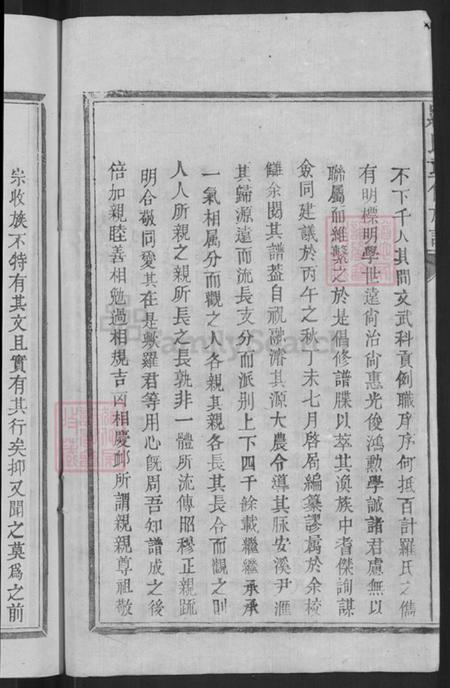 不下千人其間文武科貢例職序序何抵百計羅氏之儁
有明標明學世遠尙治尙惠光後鴻勲學誠諸君慮無以
聯屬而維繫之於是倡修譜牒以萃其渙族中耆傑詢謀
僉同建議於丙午之秋丁未七月啓局編纂謬屬於余校
讎余閱其譜葢自祝融濬其源大農令導其脉安溪尹滙
其歸源遠而流長支分而派別上下四千餘載繼繼承承
一氣相属分而觀之人各親其親各長其長合而觀之則
人人所親之親所長之長孰非一體所流傳昭穆正親疏
明合敬同愛其在是歟羅君等用心旣周吾知譜成之後
倍加親睦善相勉過相規吉凶相慶邺所謂親親尊祖敬
宗收族不特有其文且實有其行矣抑又聞之莫爲之前
FamilySearch